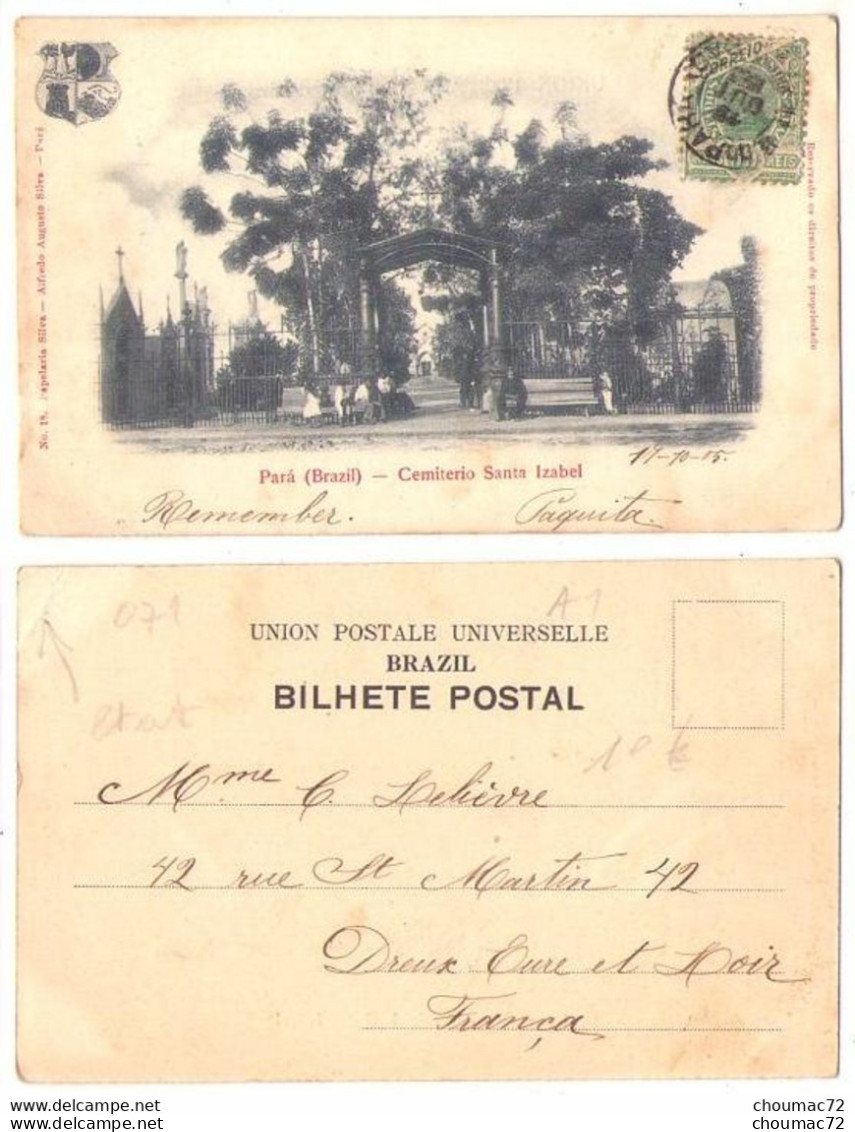 No. 18. Papelaria Silva — Alfredo Augusto Silva — Pará
CORREIO
PARÁ
Reservado os direitos de propriedade
Pará (Brazil) — Cemiterio Santa Izabel
17-10-05.
Remember. Paquita.
071
A1
UNION POSTALE UNIVERSELLE
BRAZIL
BILHETE POSTAL
etat
10 €
Mme C. Lelièvre
42 rue St Martin 42
Dreux Eure et Loir
França
choumac72
choumac72